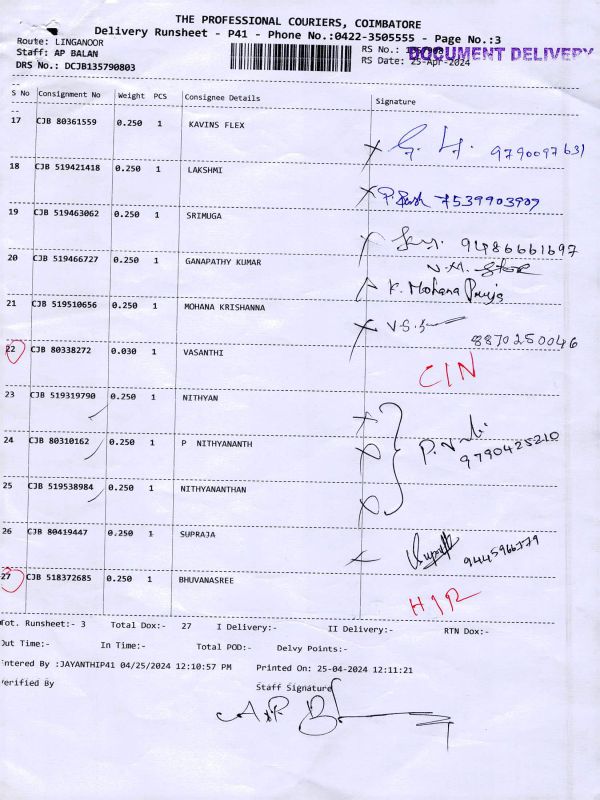 THE PROFESSIONAL COURIERS, COIMBATORE
Delivery Runsheet - P41 - Phone No.:0422-3505555 - Page No.:3
Route: LINGANOOR
Staff: AP BALAN
DRS No.: DCJB135790803
RS No.:
DOCUMENT DELIVERY
RS Date: 25-Apr-2024
S No Consignment No Weight PCS Consignee Details Signature
17 CJB 80361559 0.250 1 KAVINS FLEX
9790097631
18 CJB 519421418 0.250 1 LAKSHMI
7539903907
19 CJB 519463062 0.250 1 SRIMUGA
9486661697
20 CJB 519466727 0.250 1 GANAPATHY KUMAR
K. Mohana Priya
21 CJB 519510656 0.250 1 MOHANA KRISHANNA
8870250046
22 CJB 80338272 0.030 1 VASANTHI
CIN
23 CJB 519319790 0.250 1 NITHYAN
24 CJB 80310162 0.250 1 P NITHYANANTH
9790425210
25 CJB 519538984 0.250 1 NITHYANANTHAN
26 CJB 80419447 0.250 1 SUPRAJA
27 CJB 518372685 0.250 1 BHUVANASREE
Tot. Runsheet:- 3 Total Dox:- 27 I Delivery:- II Delivery:- RTN Dox:-
Out Time:- In Time:- Total POD:- Delvy Points:-
Entered By :JAYANTHIP41 04/25/2024 12:10:57 PM Printed On: 25-04-2024 12:11:21
Verified By Staff Signature